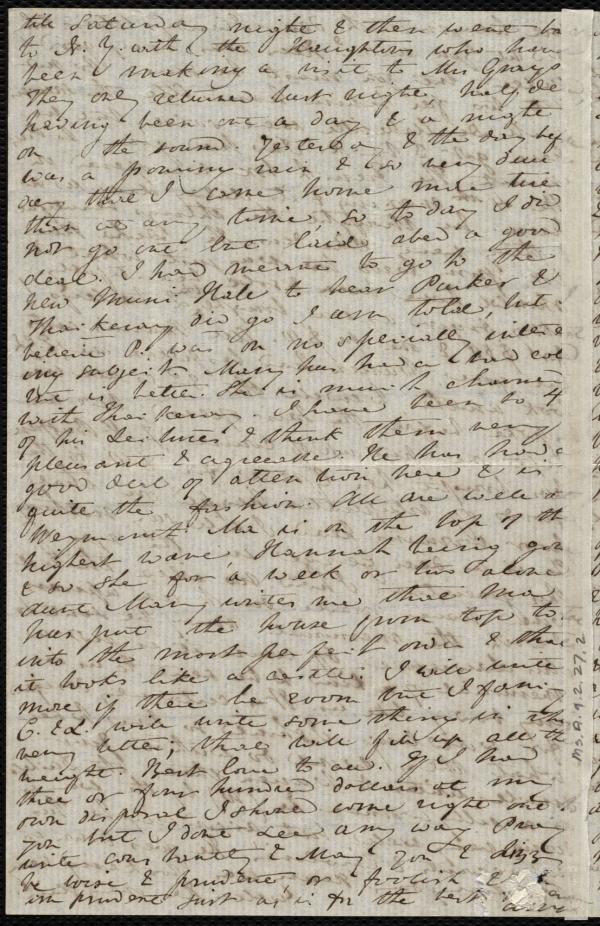 till Saturday night & then went ba
to N. Y. with the Haughtons who have
been making a visit to Mrs Grays
They only returned last night,
having been out a day & a night
on the sound. Yesterday & the day bef
was a pouring rain & so very
day that I came home more tire
than at any time, so to day I did
not go out but laid abed a good
deal. I had meant to go to the
New Music Hall to hear Parker &
Thackeray did go I am told, but
believe P. was on no specially intere
ing subject. Mary has had a bad col
but is better. She is much charme
with Thackeray. I have been to 4
of his Lectures & think them very
pleasant & agreeable. He has had a
good deal of attention here & is
quite the fashion. All are well at
Weymouth. Ma is on the top of th
highest wave, Hannah being gon
& so she for a week or two alone
Aunt Mary writes me that Ma
has put the house from top to
into the most perfect order & tha
it looks like a castle. I will write
more if there be room but I fanc
C. Ed. will write something in th
very letter, that will fill up all th
weight. Best love to all. If I had
three or four hundred dollars at my
own disposal I should come right out
you but I dont see any way Pray
write constantly & May you & Lizzy
be wise & prudent, or foolish &
im prudent just as is for the best
Ms.A.9.2.27,2